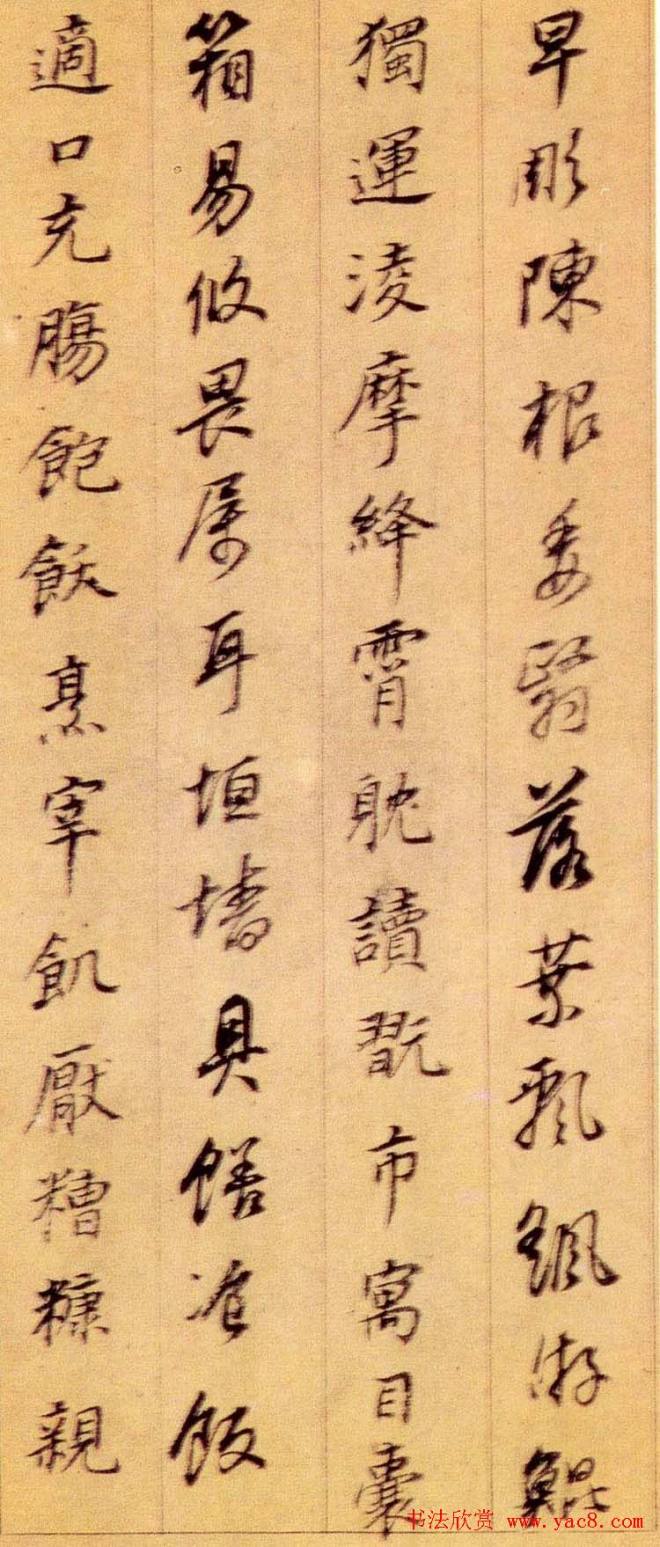 早彫陳根委翳落葉飄颻游鯤
獨運淩摩絳霄耽讀翫市寓目囊
箱易攸畏属耳垣墻具饍湌飯
適口充腸飽飫烹宰飢厭糟糠親
书法欣赏 www.yac8.com